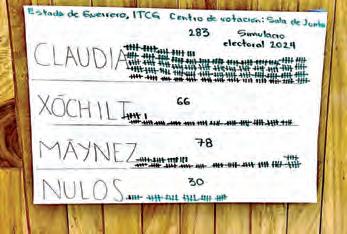 Estado de Guerrero, ITCG Centro de votación: Sala de Junta
283 Simulacro
electoral 2024
CLAUDIA
66
XÓCHILT
78
MÁYNEZ
30
NULOS